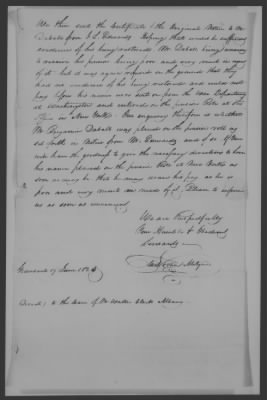 We then sent the Certificate & the Original Notice to Mr
Dabalt from J L Edwards Hoping that would be sufficient
evidence of his being restored Mr Dabalt being anxious
to receive his pension being poor and very much in need
of it but it was again refused on the ground that they
had no evidence of his being restored and would not
pay him till his name was sent on from the War Department
at Washington and entered on the pension Rolls at the
office in New York Our enquiry therefore is whether
Mr Benjamin Dabalt was placed on the pension roll as
set forth in Notice from Mr Edwards and if so If you
will have the goodness to give the necessary directions to have
his name placed on the pension Roll at New York as
soon as may be that he may receive his pay as he is
poor and very much in need of it Please to inform
us as soon as convenient
We are Respectfully
Your Humble & Obedient
Servants
17 June 1824
Direct to the care of Mr Walter Clark Albany